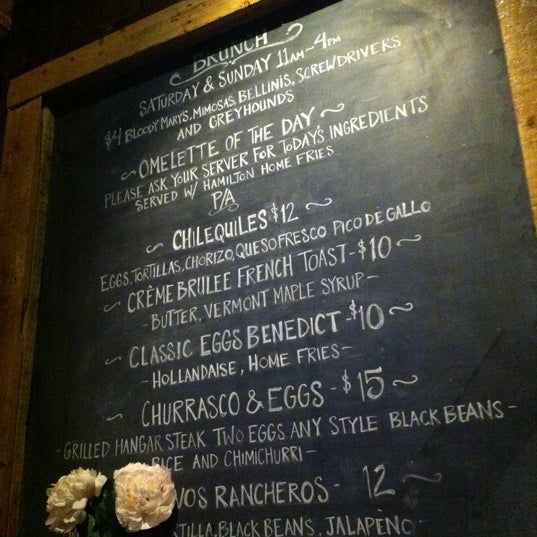 BRUNCH
SATURDAY & SUNDAY 11AM-4PM
$4 BLOODY MARYS, MIMOSAS, BELLINIS, SCREWDRIVERS
AND GREYHOUNDS
~ OMELETTE OF THE DAY ~
PLEASE ASK YOUR SERVER FOR TODAY'S INGREDIENTS
SERVED W/ HAMILTON HOME FRIES
P/A
~ CHILEQUILES $12 ~
EGGS, TORTILLAS, CHORIZO, QUESO FRESCO PICO DE GALLO
~ CRÈME BRULEE FRENCH TOAST - $10 ~
- BUTTER, VERMONT MAPLE SYRUP -
~ CLASSIC EGGS BENEDICT - $10 ~
- HOLLANDAISE, HOME FRIES -
~ CHURRASCO & EGGS - $15 ~
- GRILLED HANGAR STEAK TWO EGGS ANY STYLE BLACK BEANS -
RICE AND CHIMICHURRI -
VOS RANCHEROS - 12 ~
TILLA, BLACK BEANS, JALAPEÑO -